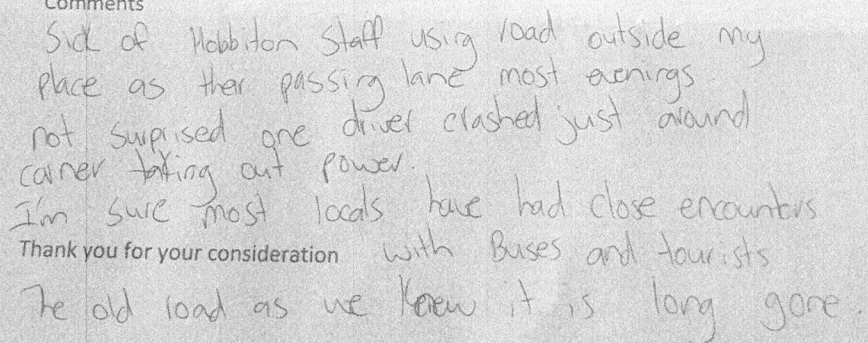 Comments
Sick of Hobbiton Staff using road outside my
place as ther passing lane most evenings.
not surprised one driver crashed just around
corner taking out power.
I'm sure most locals have had close encounters
Thank you for your consideration with Buses and tourists
The old road as we knew it is long gone.